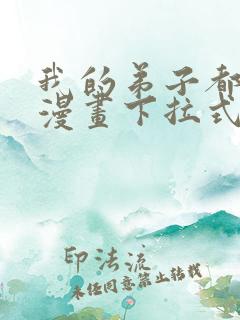 我的弟子都
漫畫下拉式
印法流
未经同意禁止转载